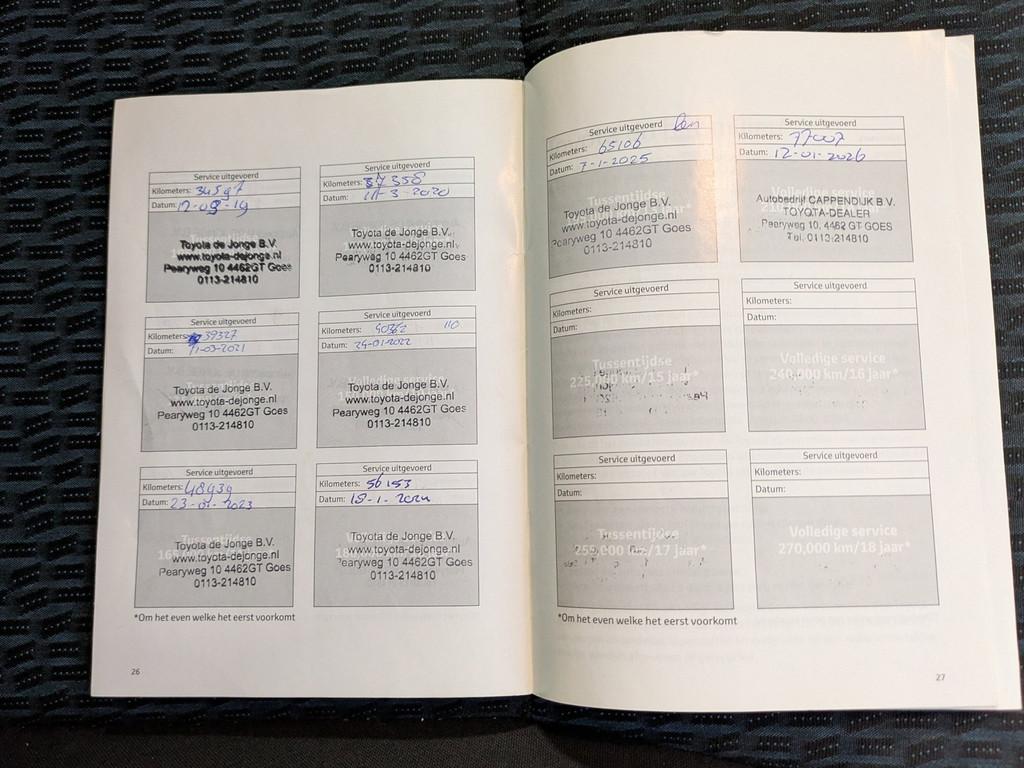 Service uitgevoerd
Kilometers: 34597
Datum: 12-09-19
Toyota de Jonge B.V.
www.toyota-dejonge.nl
Pearyweg 10 4462GT Goes
0113-214810
Service uitgevoerd
Kilometers: 37358
Datum: 11-3-2020
Toyota de Jonge B.V.
www.toyota-dejonge.nl
Pearyweg 10 4462GT Goes
0113-214810
Service uitgevoerd
Kilometers: 39327
Datum: 11-03-2021
Toyota de Jonge B.V.
www.toyota-dejonge.nl
Pearyweg 10 4462GT Goes
0113-214810
Service uitgevoerd
Kilometers: 40362 110
Datum: 24-01-2022
Toyota de Jonge B.V.
www.toyota-dejonge.nl
Pearyweg 10 4462GT Goes
0113-214810
Service uitgevoerd
Kilometers: 48939
Datum: 23-01-2023
Tussentijdse
Toyota de Jonge B.V.
www.toyota-dejonge.nl
Pearyweg 10 4462GT Goes
0113-214810
Service uitgevoerd
Kilometers: 56153
Datum: 18-1-2024
Toyota de Jonge B.V.
www.toyota-dejonge.nl
Pearyweg 10 4462GT Goes
0113-214810
*Om het even welke het eerst voorkomt
26
Service uitgevoerd
Kilometers: 65106
Datum: 7-1-2025
Tussentijdse
Toyota de Jonge B.V.
www.toyota-dejonge.nl
Pearyweg 10 4462GT Goes
0113-214810
Service uitgevoerd
Kilometers: 77007
Datum: 12-01-2026
Volledige service
Autobedrijf CAPPENDIJK B.V.
TOYOTA-DEALER
Pearyweg 10, 4462 GT GOES
Tel. 0113-214810
Service uitgevoerd
Kilometers:
Datum:
Tussentijdse
225,000 km/15 jaar*
Service uitgevoerd
Kilometers:
Datum:
Volledige service
240,000 km/16 jaar*
Service uitgevoerd
Kilometers:
Datum:
Tussentijdse
255,000 km/17 jaar*
Service uitgevoerd
Kilometers:
Datum:
Volledige service
270,000 km/18 jaar*
*Om het even welke het eerst voorkomt
27